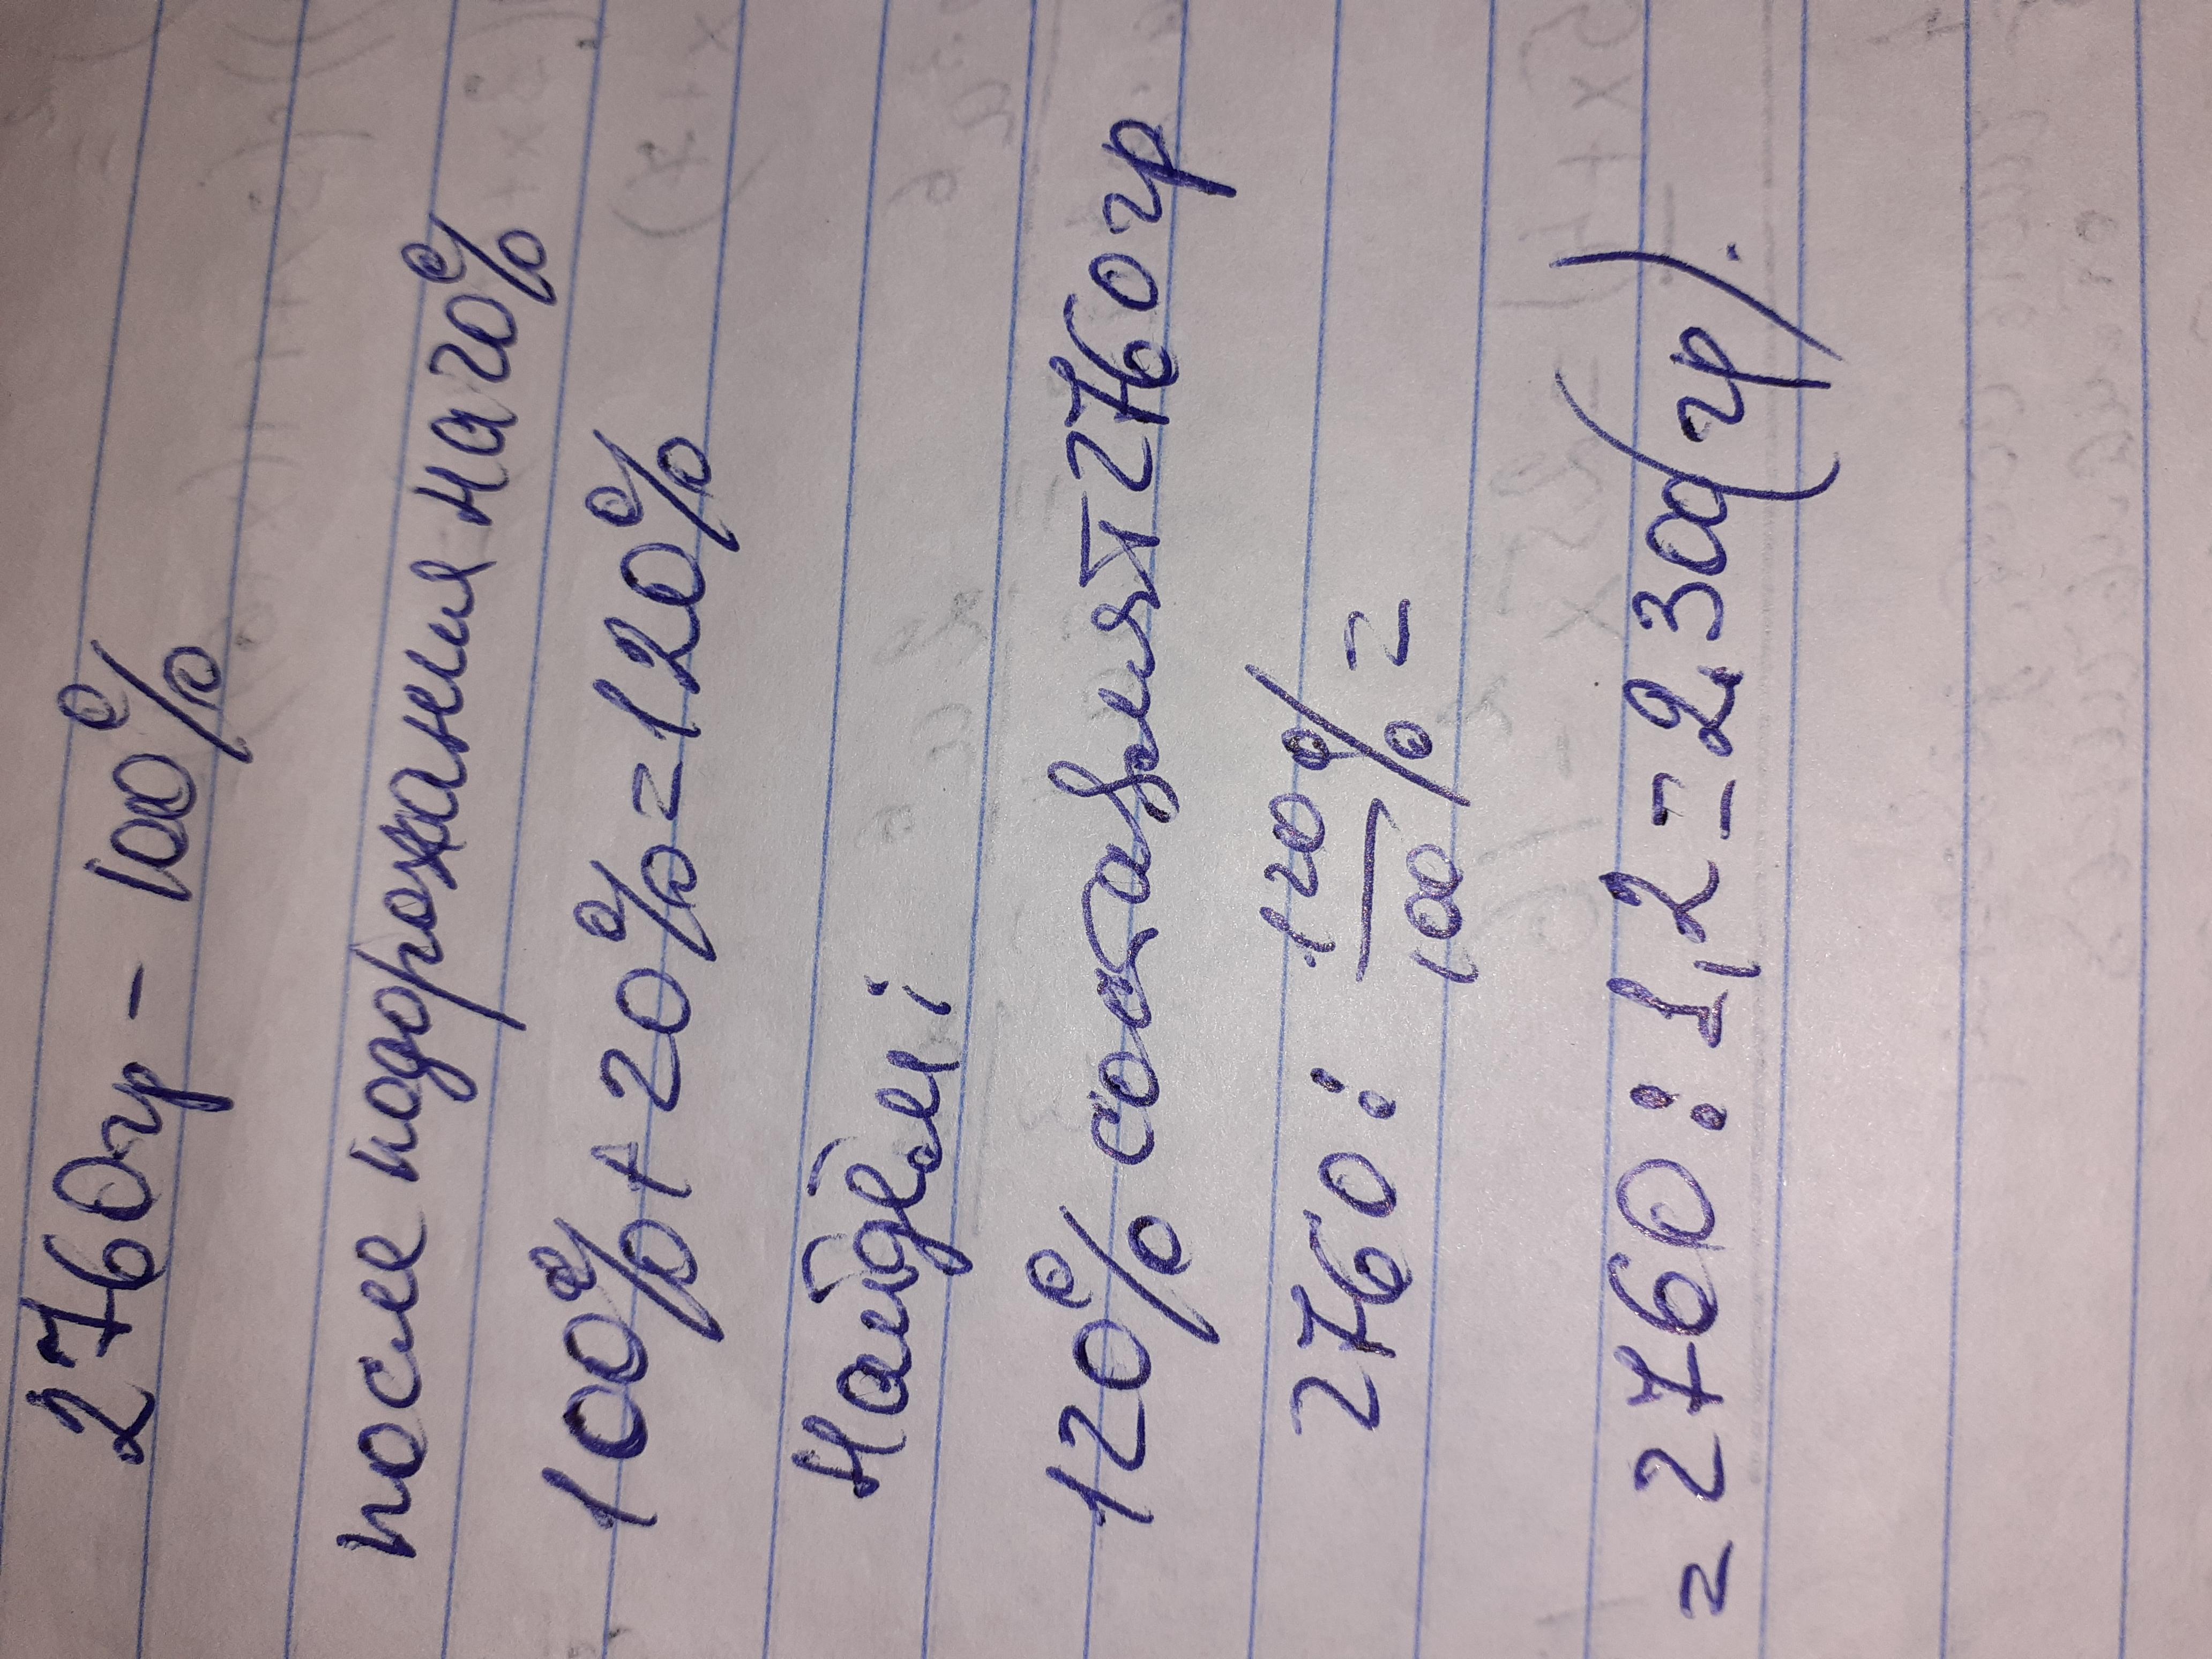 2760гр - 100%
после подорожания на 20%
100% + 20% = 120%
Найдём:
120% составляет 2760гр
2760 : 120% / 100% =
= 2760 : 1,2 = 2,300(гр).